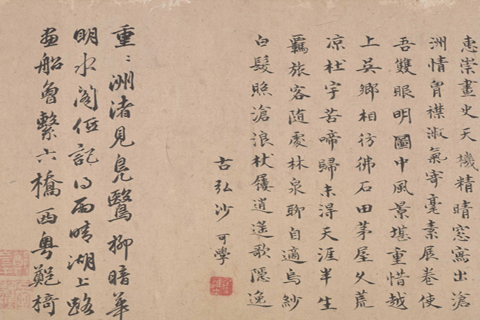 惠崇畫史天機精晴窓寫出滄
洲情胷襟淑氣寄毫素展卷使
吾雙眼明圖中風景堪重惜越
上吳鄉相彷彿石田茅屋久荒
凉杜宇苦啼歸未得天涯半生
羈旅客随處林泉聊自適烏紗
白髮照滄浪杖屨逍遥歌隱逸
古弘沙可學
重〻洲渚見鳧鷖柳暗華
明水閣低記得雨晴湖上路
畫船魯繫六橋西粤鄭椅